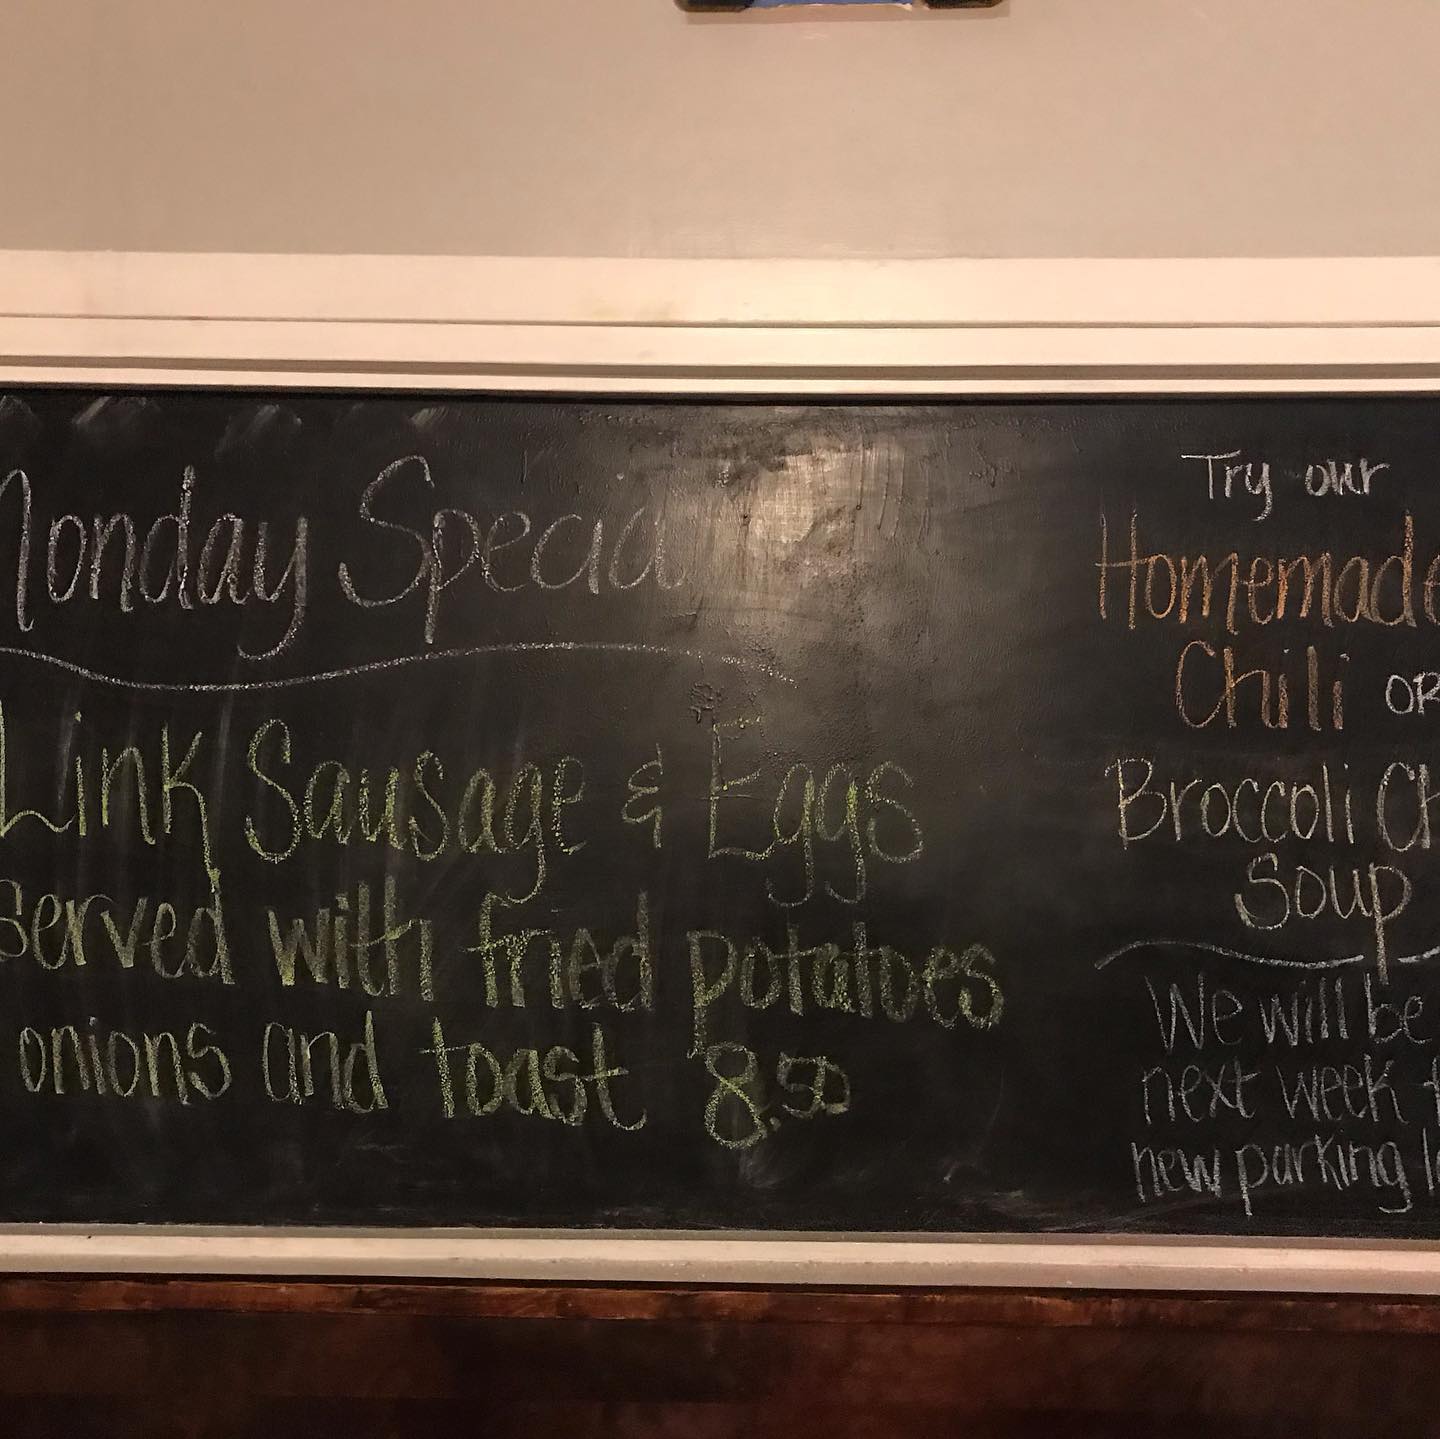 Monday Special
Link Sausage & Eggs
served with fried potatoes
onions and toast 8.50
Try our
Homemade
Chili OR
Broccoli Ch
Soup
We will be
next week
new parking